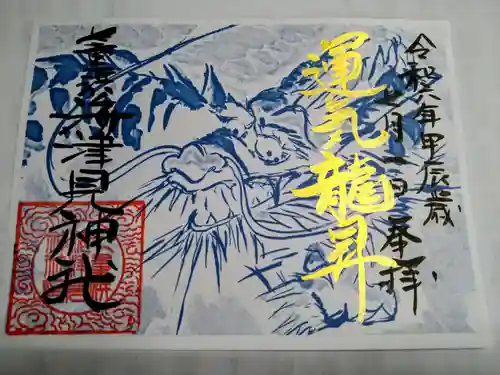 令和六年甲辰歳
月一日 奉拝
運気龍昇
津見神社